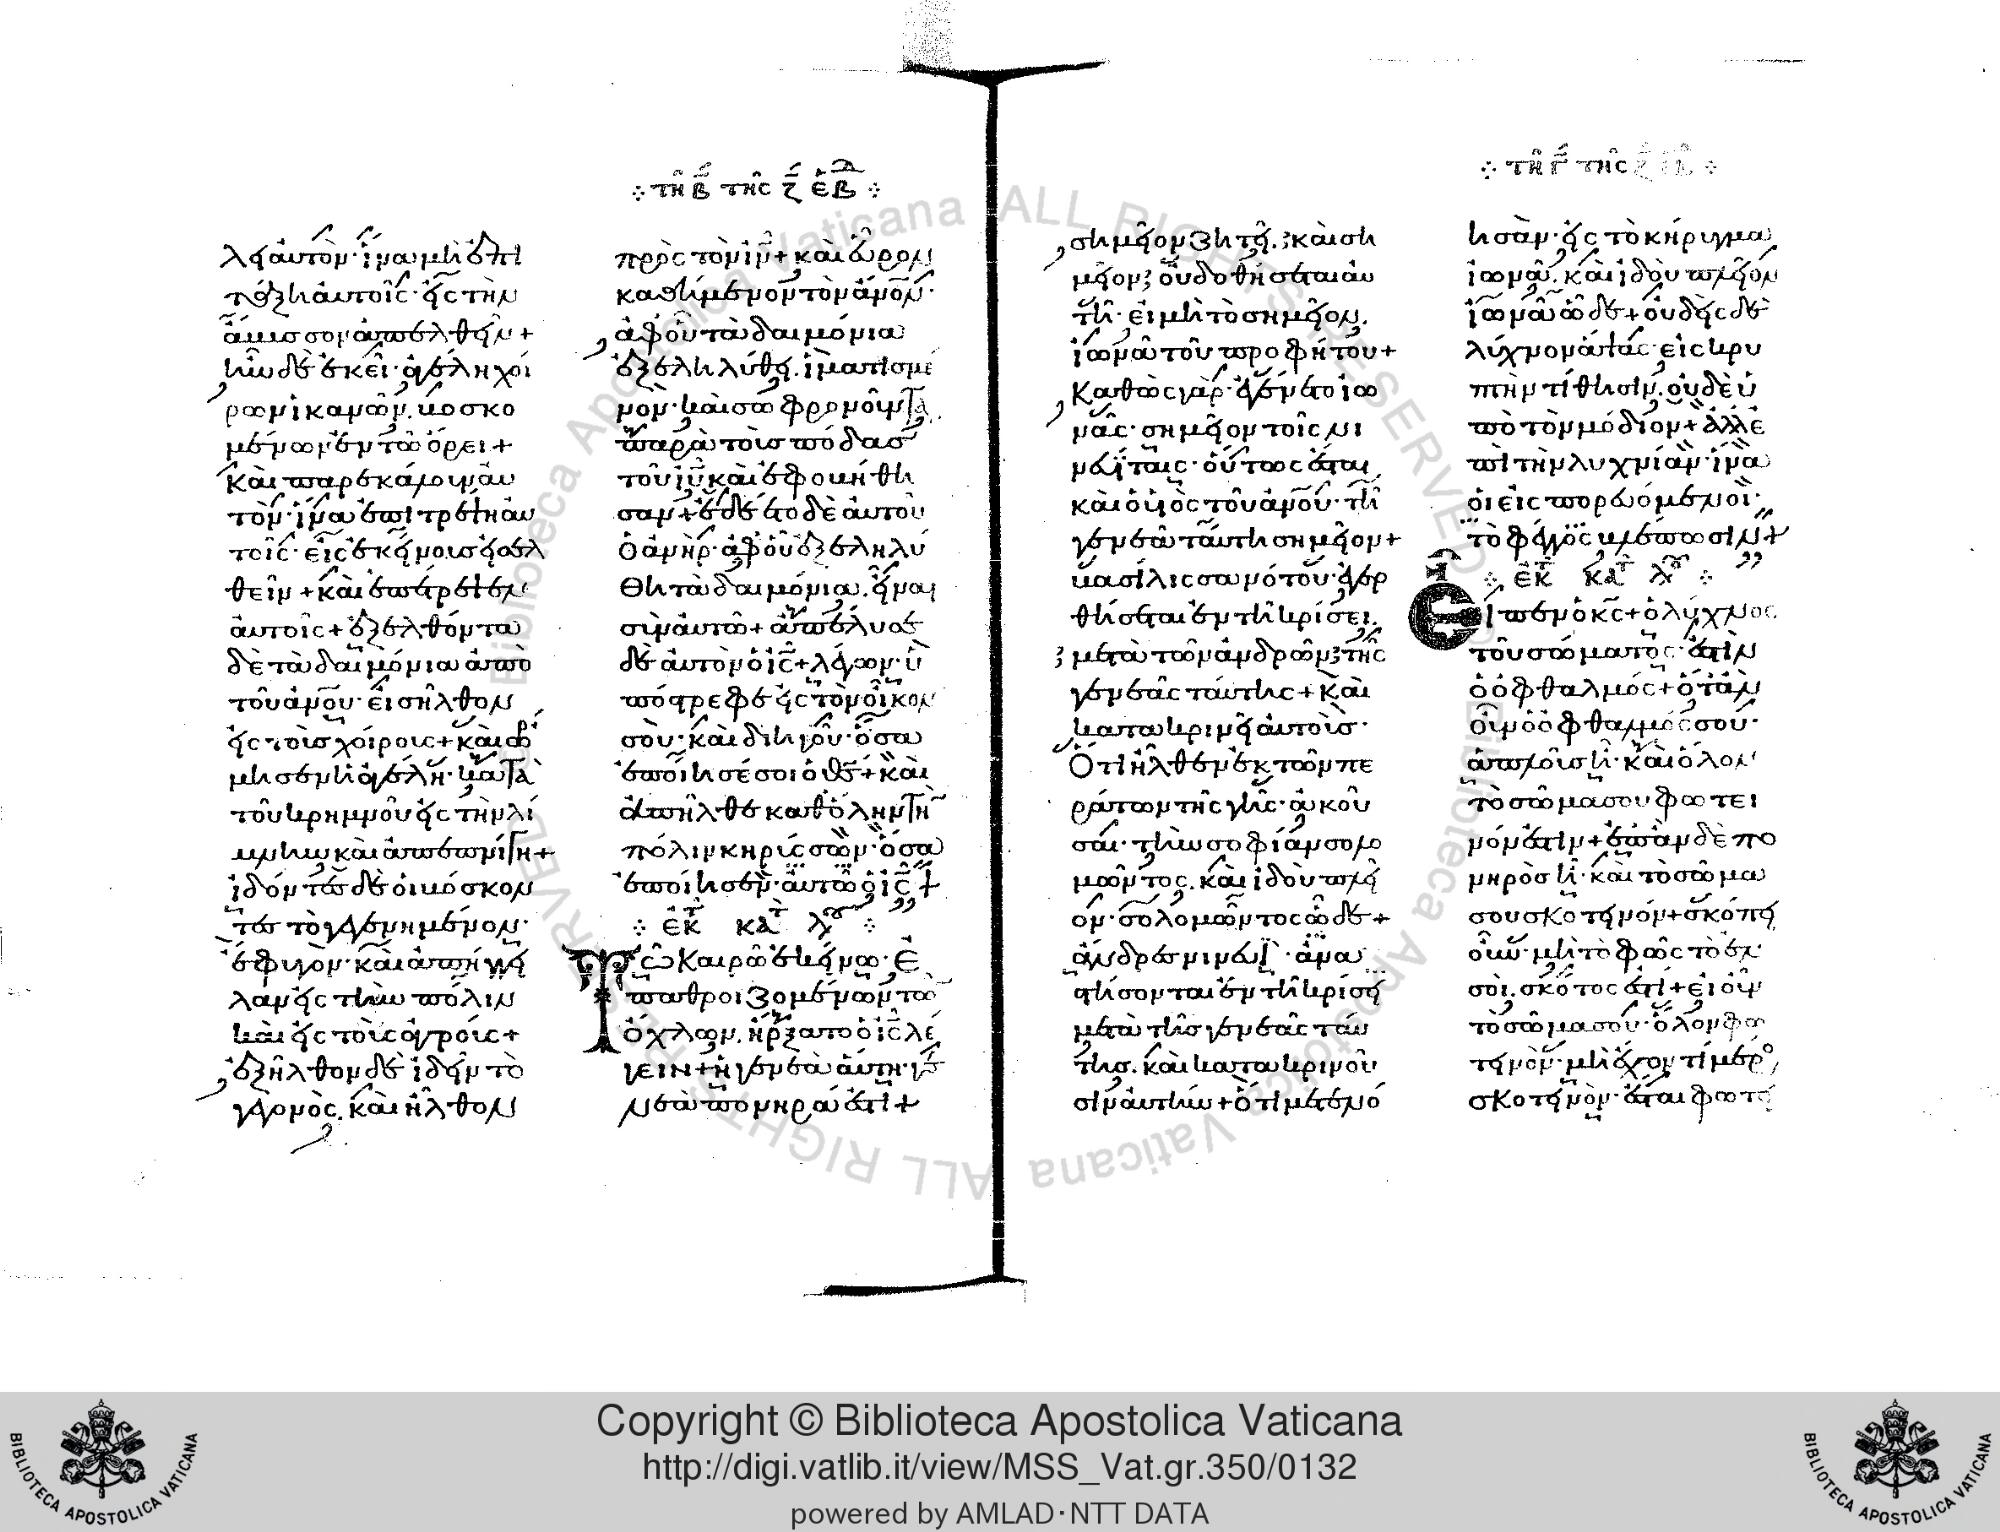 λει αὐτὸν· ἵνα μὴ ἐπι
τάξη αὐτοῖς· εἰς τὴν
ἄβυσσον ἀπελθεῖν+
ἦν δὲ ἐκεῖ· ἀγέλη χοί
ρων ἱκανῶν, βοσκο
μένων ἐν τῶ ὄρει+
καὶ παρεκάλουν αὐ
τὸν· ἵνα ἐπιτρέψη αὐ
τοῖς· εἰς ἐκείνους εἰσελ
θεῖν+καὶ ἐπέτρεψεν
αὐτοῖς+ἐξελθόντα
δὲ τὰ δαιμόνια ἀπὸ
τοῦ ἀνου· εἰσῆλθον
εἰς τοὺς χοίρους+καὶ ὥρ
μησεν ἡ ἀγέλη· κατὰ
τοῦ κρημνοῦ εἰς τὴν λί
μνην καὶ ἀπεπνίγη+
ἰδόντες δὲ οἱ βόσκον
τες τὸ γεγενημένον·
ἔφυγον· καὶ ἀπήγγει
λαν εἰς τὴν πόλιν
καὶ εἰς τοὺς ἀγρούς+
ἐξῆλθον δὲ ἰδεῖν τὸ
γεγονὸς, καὶ ἦλθον
τῆ β τῆς ζ ἑβδ
πρὸς τὸν ιν+καὶ εὗρον
καθήμενον τὸν ἀνον·
ἀφ οὗ τὰ δαιμόνια
ἐξεληλύθει, ἱματισμέ
νον· καὶ σωφρονοῦντα,
παρὰ τοὺς πόδας
τοῦ ιυ καὶ ἐφοβήθη
σαν+ἐδέετο δὲ αὐτοῦ
ὁ ἀνὴρ· ἀφ οὗ ἐξεληλύ
θη τὰ δαιμόνια, εἶναι
σὺν αὐτῶ+ἀπέλυσε
δὲ αὐτὸν ὁ ις+λέγων· ὑ
πόστρεφε εἰς τὸν οἶκον
σου· καὶ διηγοῦ· ὅσα
ἐποίησέ σοι ὁ θς+καὶ
ἀπῆλθε καθ ὅλην τὴν
πόλιν κηρύσσων· ὅσα
ἐποίησεν· αὐτῶ ὁ ις+
ἐκ κατ λγ
Τῶ καιρῶ ἐκείνω· ἐ
παθροιζομένων τῶν
ὄχλων, ἤρξατο ὁ ις λέ
γειν+ἡ γενεὰ αὕτη· γε
νεὰ πονηρά ἐστι+
σημεῖον ζητεῖ, καὶ ση
μεῖον οὐ δοθήσεται αὐ
τῆ· εἰ μὴ τὸ σημεῖον,
ἰωνᾶ τοῦ προφήτου+
Καθὼς γὰρ· ἐγένετο ἰω
νᾶς· σημεῖον τοῖς νι
νευΐταις· οὕτως ἔσται
καὶ ὁ υἱὸς τοῦ ἀνου· τῆ
γενεᾶ ταύτη σημεῖον+
βασίλισσα νότου· ἐγερ
θήσεται ἐν τῆ κρίσει,
μετὰ τῶν ἀνδρῶν τῆς
γενεᾶς ταύτης+καὶ
κατακρινεῖ αὐτοὺς·
Ὅτι ἦλθεν ἐκ τῶν πε
ράτων τῆς γῆς· ἀκοῦ
σαι· τὴν σοφίαν σολο
μῶντος, καὶ ἰδοὺ πλεῖ
ον· σολομῶντος ὧδε+
ἄνδρες νινευῒ· ἀνα
στήσονται ἐν τῆ κρίσει
μετὰ τῆς γενεᾶς ταύ
της, καὶ κατακρινοῦ
σιν αὐτήν+ὅτι μετενό
τῆ γ τῆς ζ
ησαν· εἰς τὸ κήρυγμα
ἰωνᾶ, καὶ ἰδοὺ πλεῖον
ἰωνᾶ ὧδε+οὐδεὶς δὲ
λύχνον ἅψας· εἰς κρυ
πτὴν τίθησιν, οὐδὲ ὑ
πὸ τὸν μόδιον+ἀλλ ἐ
πὶ τὴν λυχνίαν· ἵνα
οἱ εἰσπορευόμενοι·
τὸ φέγγος βλέπωσιν+
ἐκ κατ λγ
Εἶπεν ὁ κς+ὁ λύχνος
τοῦ σώματος· ἐστὶν
ὁ ὀφθαλμός+ὅταν
οὖν ὁ ὀφθαλμός σου·
ἁπλοῦς ἦ· καὶ ὅλον
τὸ σῶμα σου φωτει
νόν ἐστιν+ἐπὰν δὲ πο
νηρὸς ἦ· καὶ τὸ σῶμα
σου σκοτεινόν+σκόπει
οὖν· μὴ τὸ φῶς τὸ ἐν
σοὶ, σκότος ἐστὶ+εἰ οὖν
τὸ σῶμα σου· ὅλον φω
τεινὸν· μὴ ἔχον τὶ μέρος
σκοτεινὸν· ἔσται φωτει
Copyright © Biblioteca Apostolica Vaticana
http://digi.vatlib.it/view/MSS_Vat.gr.350/0132
powered by AMLAD·NTT DATA
BIBLIOTECA APOSTOLICA VATICANA
BIBLIOTECA APOSTOLICA VATICANA